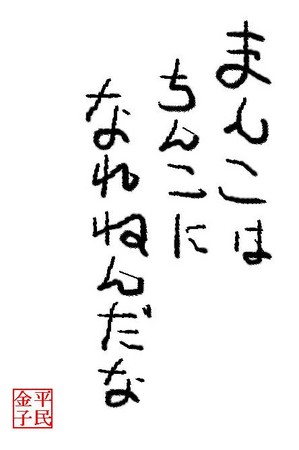 まんこは
ちんこに
なれねんだな
平民
金子